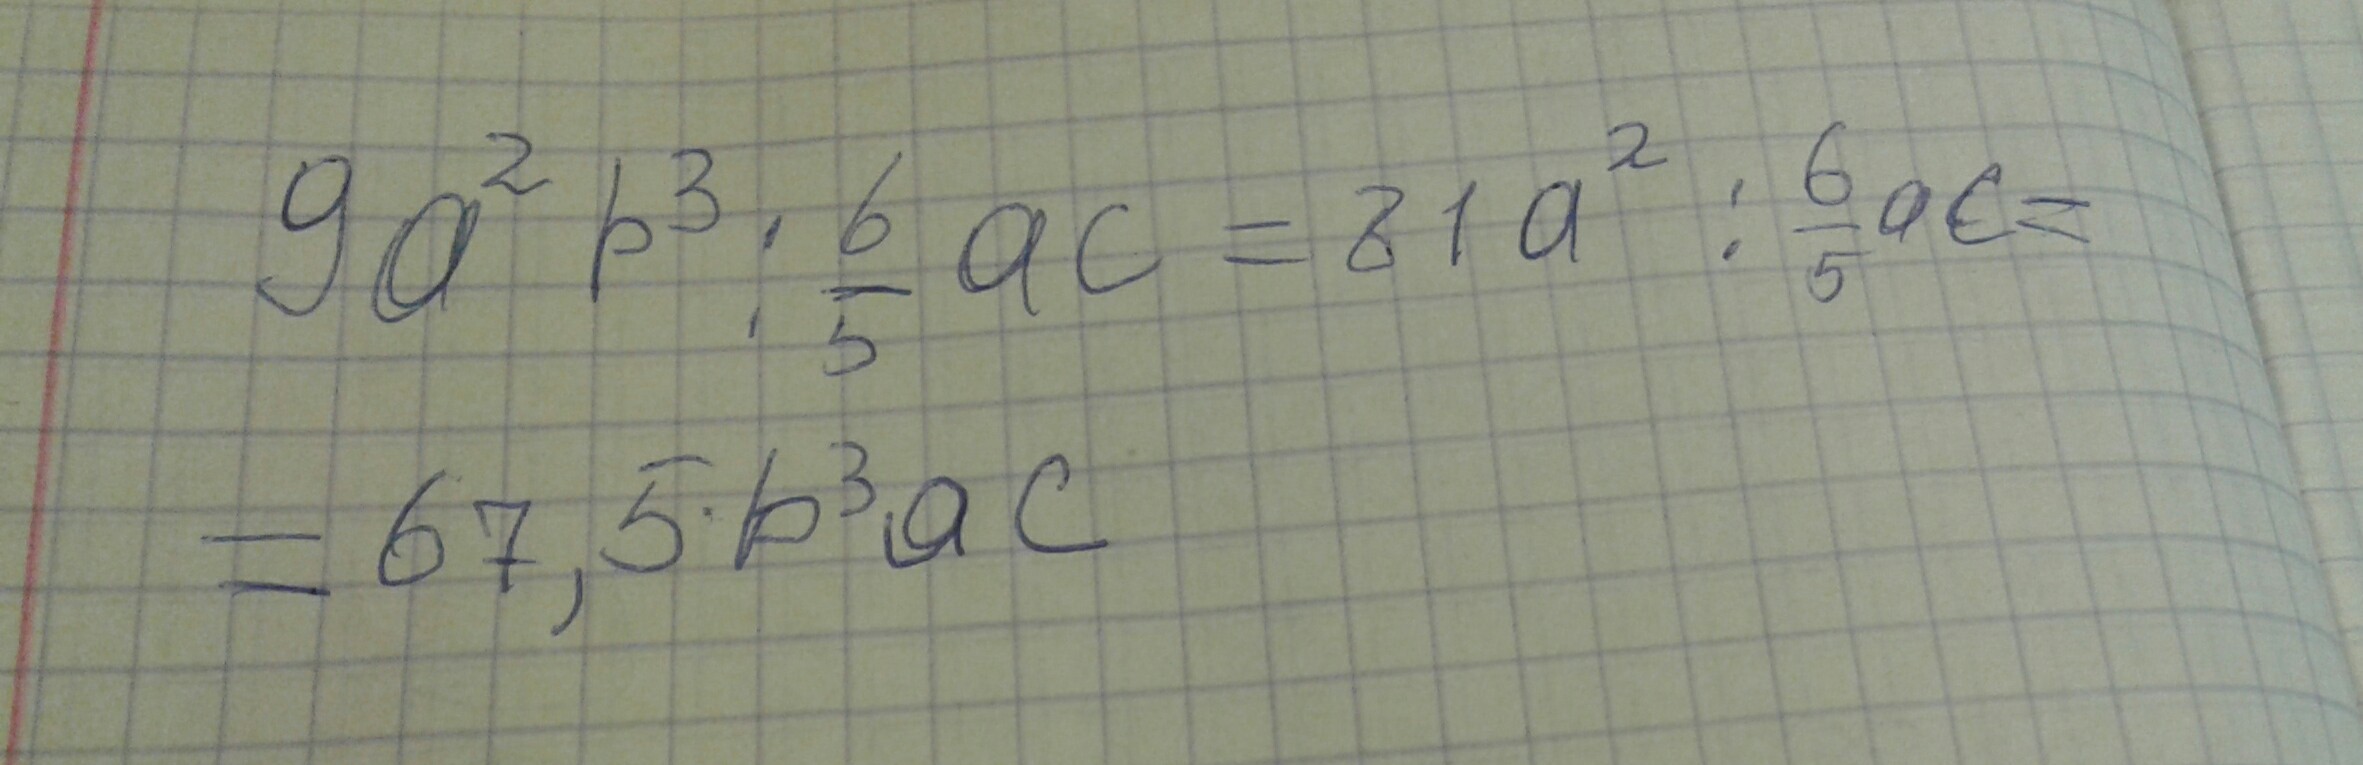 9a² b³ : 6/5 ac = 81a² : 6/5 ac =
= 67,5·b³ac